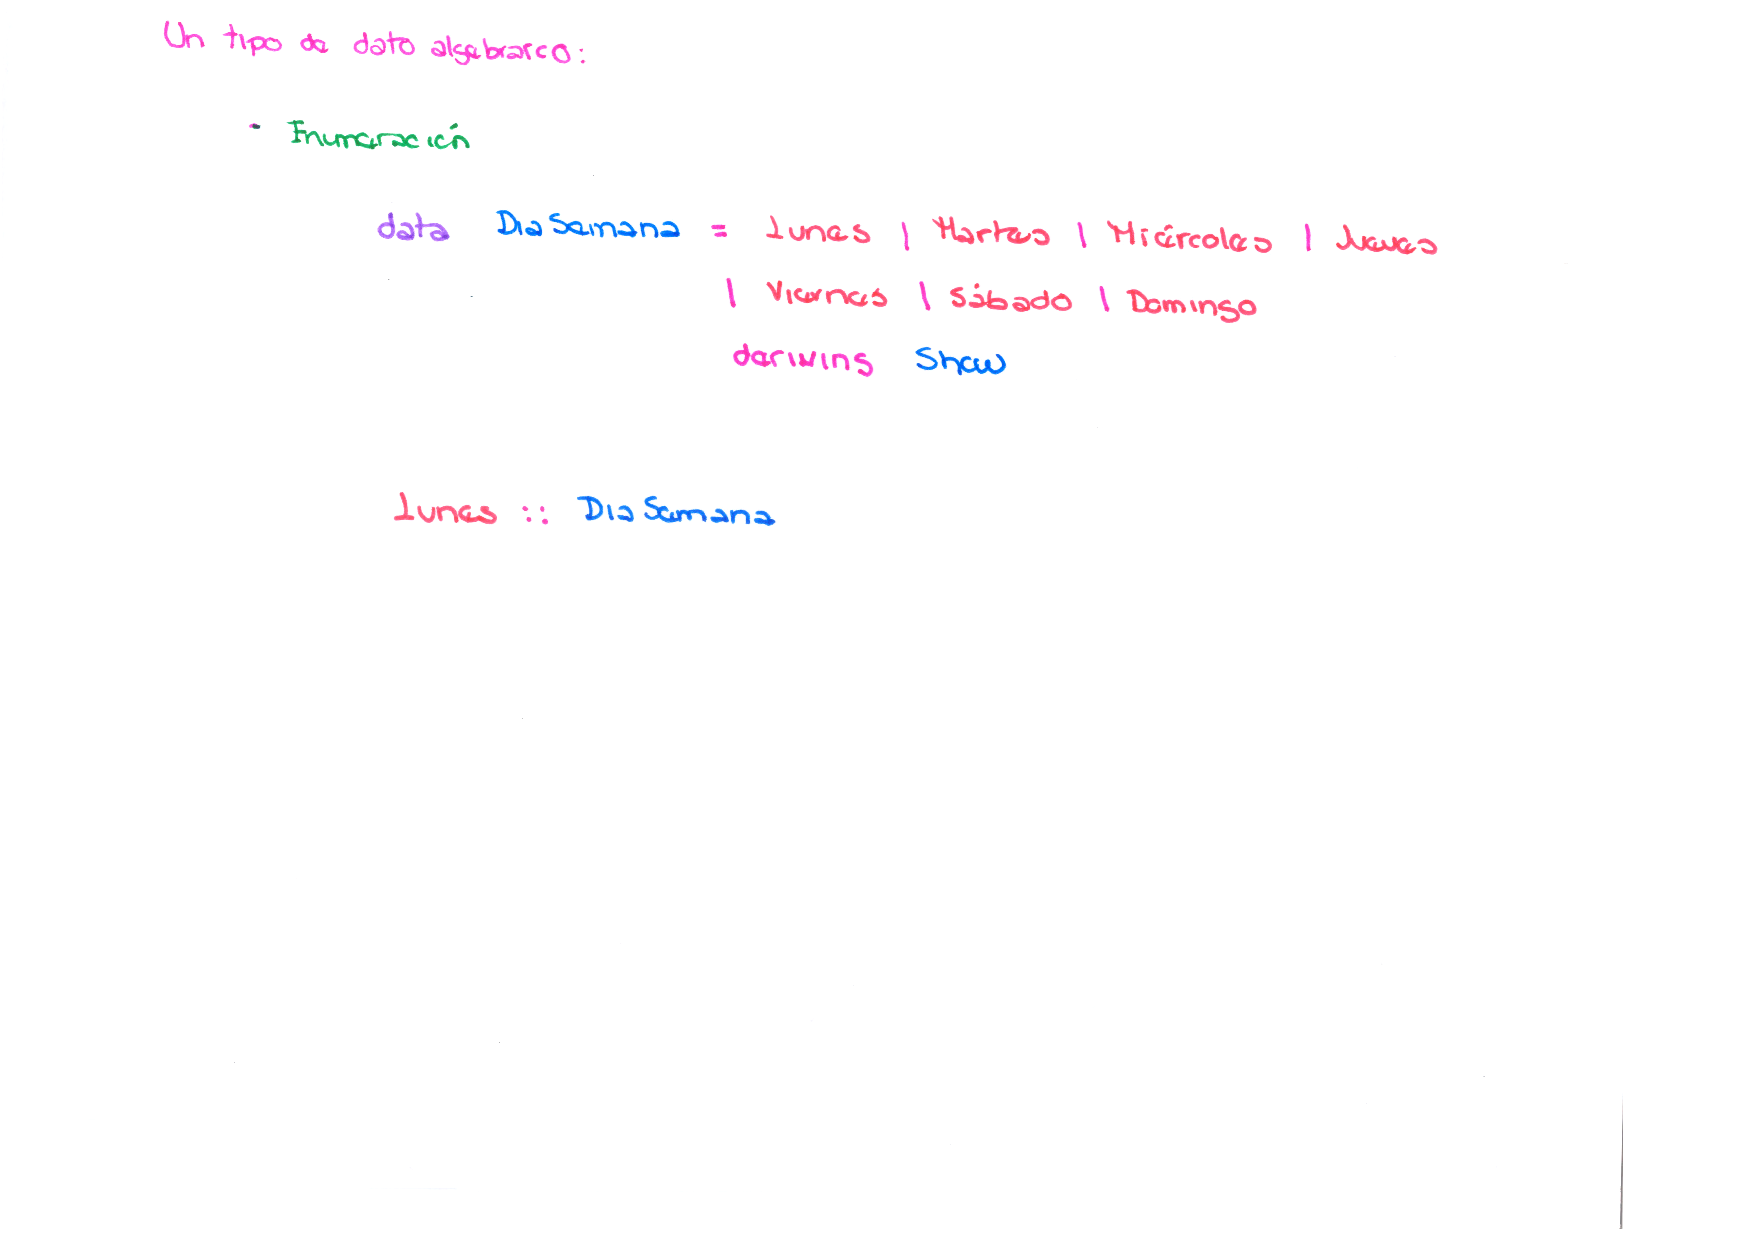 Un tipo de dato algebraico:
- Enumeración
data DiaSemana = Lunes | Martes | Miércoles | Jueves
| Viernes | Sábado | Domingo
deriving Show
Lunes :: DiaSemana